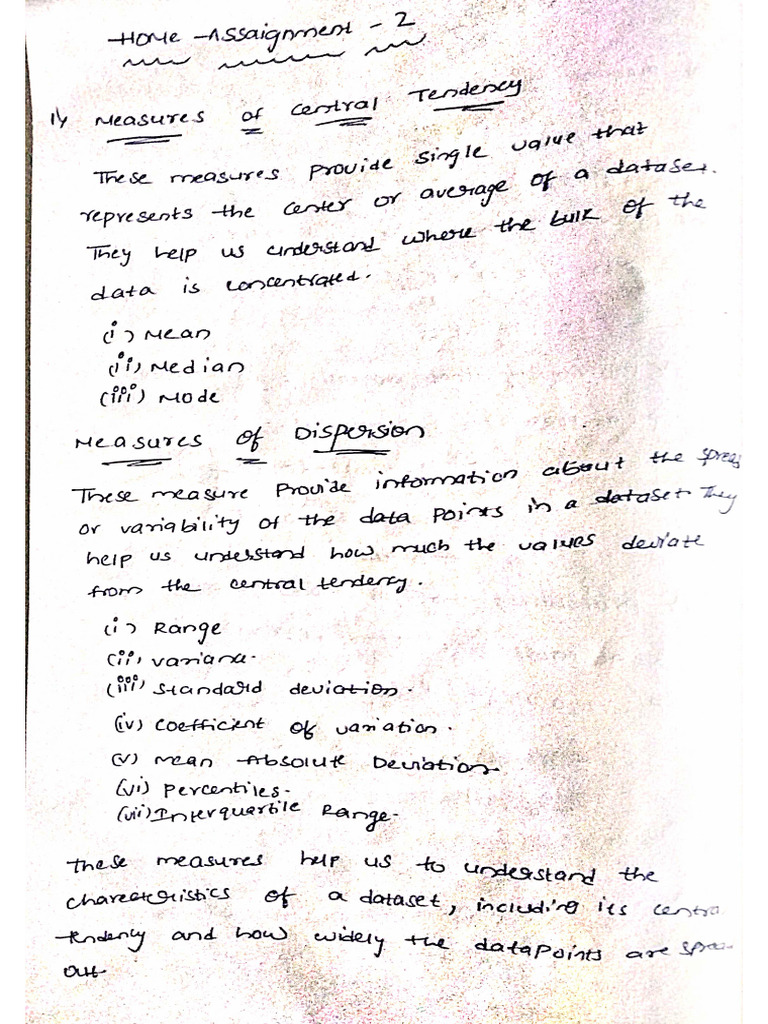 Home -Assaignment - 2
1) Measures of central Tendency
These measures provide single value that
represents the center or average of a dataset.
They help us understand where the bulk of the
data is concentrated.
(i) Mean
(ii) Median
(iii) Mode
Measures of Dispersion
These measure Provide information about the sprea
or variability of the data points in a dataset. They
help us understand how much the values deviate
from the central tendency.
(i) Range
(ii) variana.
(iii) standard deviation.
(iv) coefficient of variation.
(v) Mean Absolute Deviation.
(vi) Percentiles.
(vii) Interquartile Range.
These measures help us to understand the
charecteristics of a dataset, including its centra
tendency and how widely the datapoints are sprea
out.